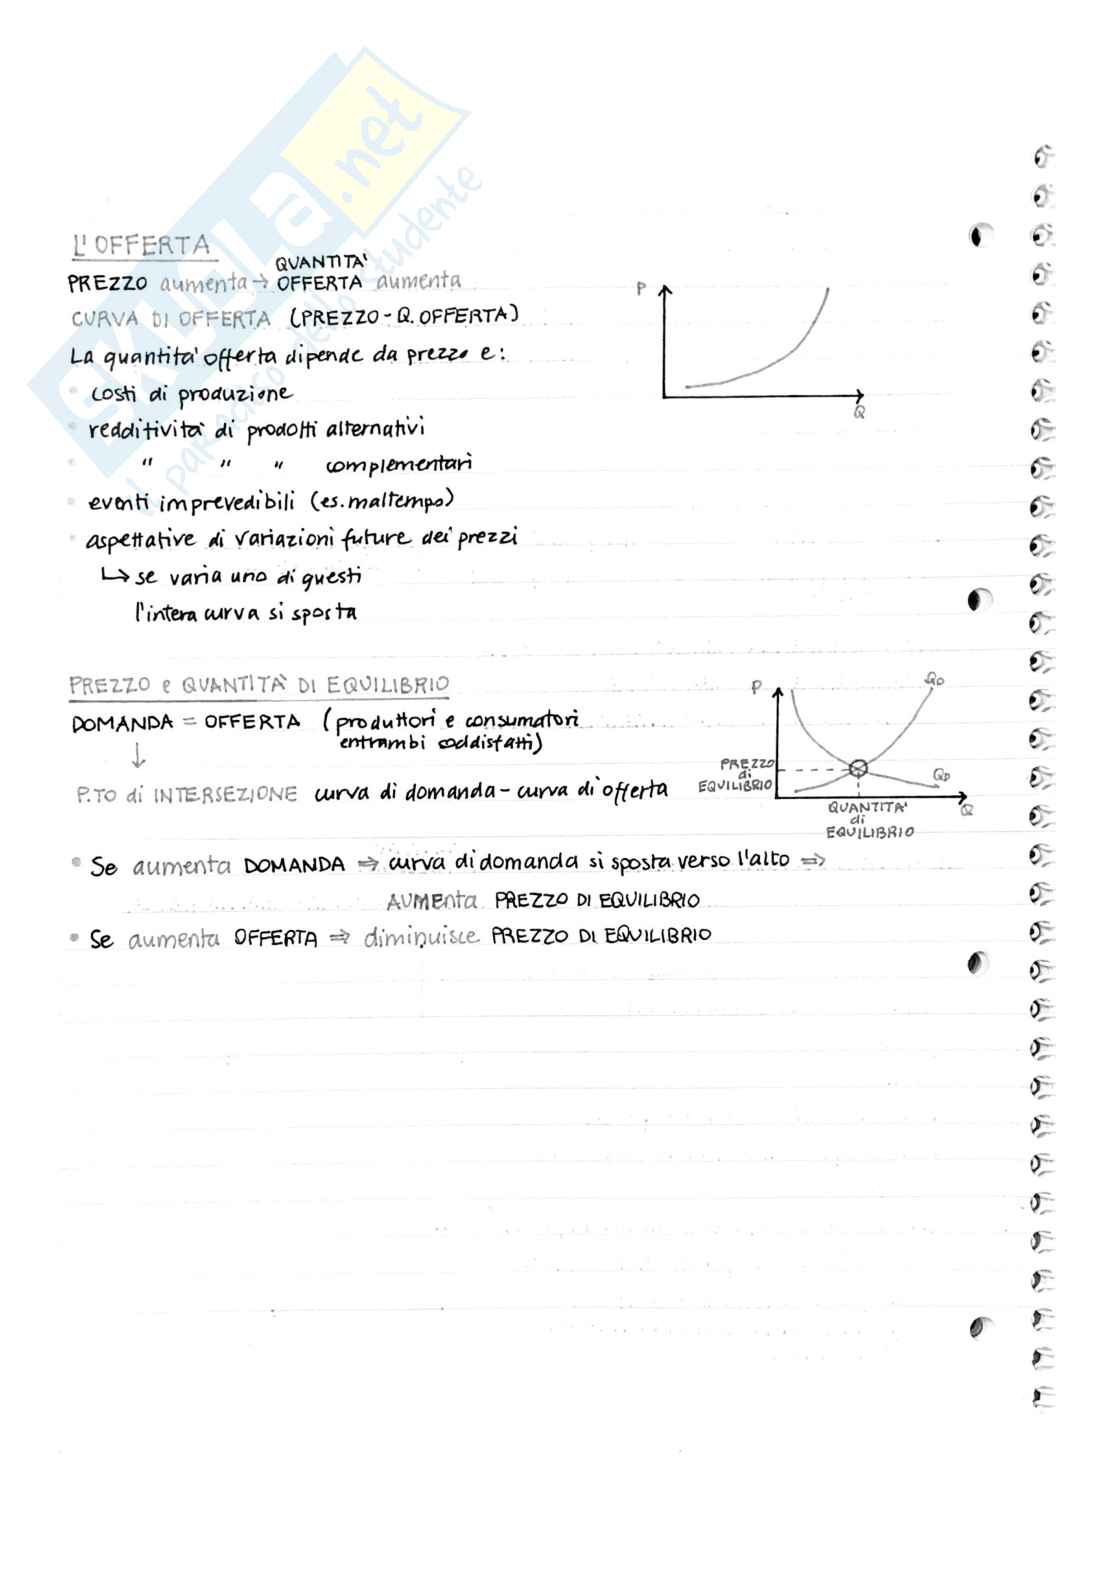 SKUOLA.net
il paradiso dello studente
L'OFFERTA
PREZZO aumenta → QUANTITA' OFFERTA aumenta
CURVA DI OFFERTA (PREZZO - Q. OFFERTA)
La quantita' offerta dipende da prezzo e:
• costi di produzione
• redditivita' di prodotti alternativi
• " " " complementari
• eventi imprevedibili (es. maltempo)
• aspettative di variazioni future dei prezzi
↳ se varia uno di questi
l'intera curva si sposta
P
Q
PREZZO e QUANTITA' DI EQUILIBRIO
DOMANDA = OFFERTA (produttori e consumatori
entrambi soddisfatti)
↓
P.TO di INTERSEZIONE curva di domanda - curva di offerta
P
Qo
PREZZO
di
EQUILIBRIO
QD
Q
QUANTITA'
di
EQUILIBRIO
• Se aumenta DOMANDA ⇒ curva di domanda si sposta verso l'alto ⇒
AUMENTA PREZZO DI EQUILIBRIO
• Se aumenta OFFERTA ⇒ diminuisce PREZZO DI EQUILIBRIO